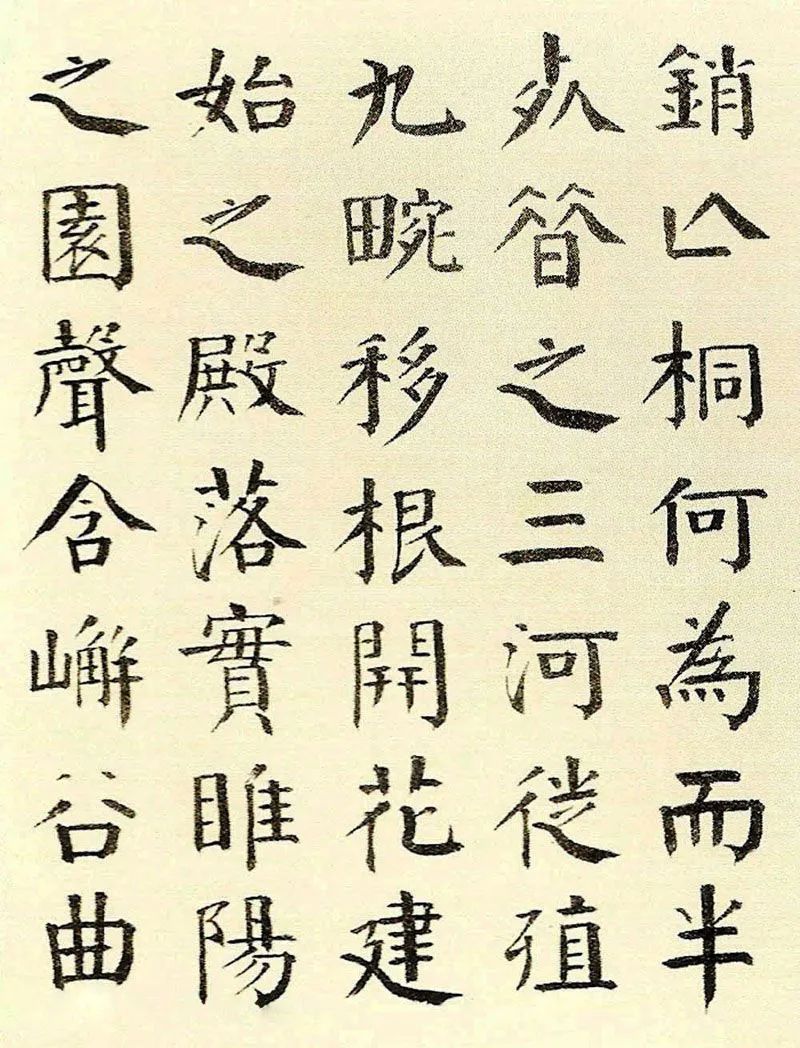 銷亾桐何為而半
死昔之三河徙殖
九畹移根開花建
始之殿落實睢陽
之園聲含嶰谷曲